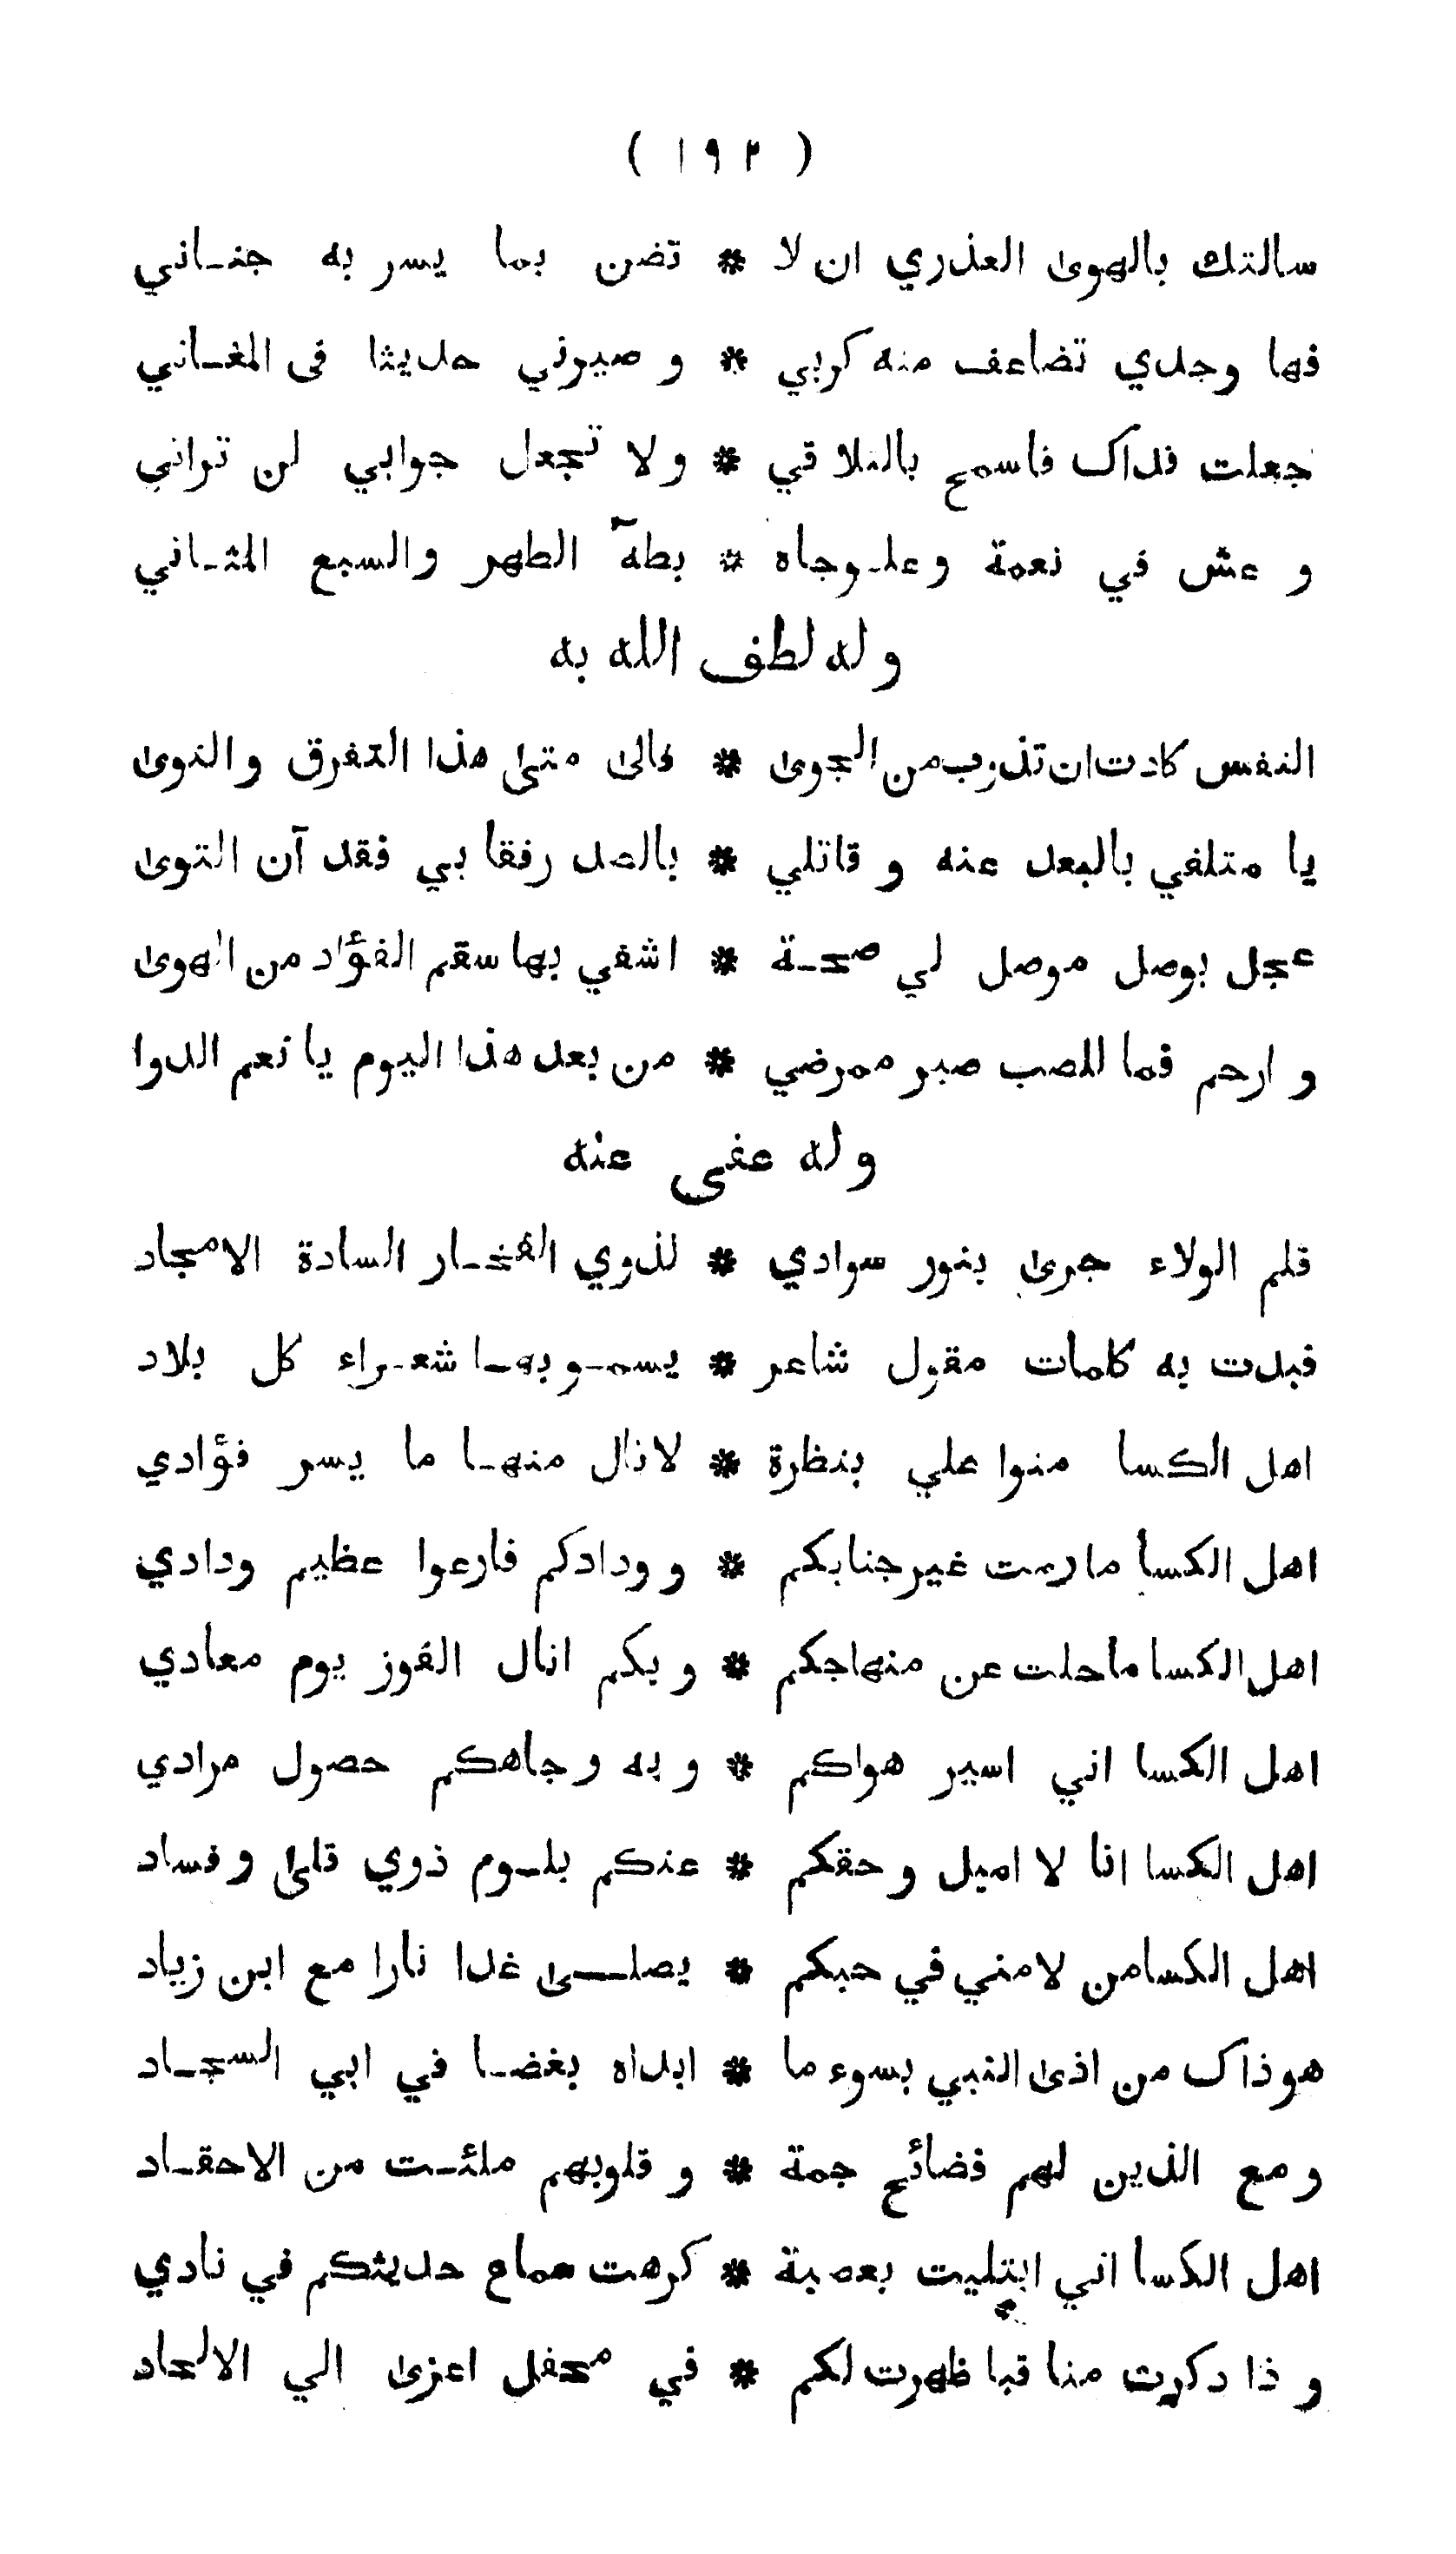 ( ١٩٢ )
سالتك بالهوى العذري ان لا * تضن بما يسر به جناني
فها وجدي تضاعف منه كربي * و صيرني حديثا فى المغاني
جعلت فداك فاسمح بالتلاقي * ولا تجعل جوابي لن تراني
و عش في نعمة وعلو جاه * بطهٓ الطهر والسبع المثاني
وله لطف الله به
النفس كادت ان تذوب من الجوى * فالى متى هذا التفرق والنوى
يا متلفي بالبعد عنه و قاتلي * بالصد رفقا بي فقد آن التوى
عجل بوصل موصل لي صحة * اشفي بها سقم الفؤاد من الهوى
و ارحم فما للصب صبر ممرضي * من بعد هذا اليوم يا نعم الدوا
وله عفى عنه
قلم الولاء جرى بنور سوادي * لذوي الفخار السادة الامجاد
فبدت به كلمات مقول شاعر * يسمو بها شعراء كل بلاد
اهل الكسا منوا علي بنظرة * لانال منها ما يسر فؤادي
اهل الكسا ما رمت غير جنابكم * و ودادكم فارعوا عظيم ودادي
اهل الكسا ما حلت عن منهاجكم * و بكم انال الفوز يوم معادي
اهل الكسا اني اسير هواكم * و به و جاهكم حصول مرادي
اهل الكسا انا لا اميل و حقكم * عنكم بلوم ذوي قلى و فساد
اهل الكسا من لامني في حبكم * يصلى غدا نارا مع ابن زياد
هو ذاك من اذى النبي بسوء ما * ابداه بغضا في ابي السجاد
و مع الذين لهم فضائح جمة * و قلوبهم ملئت من الاحقاد
اهل الكسا اني ابتليت بعصبة * كرهت سماع حديثكم في نادي
و ذا دكرت مناقبا ظهرت لكم * في محفل اعزى الي الالحاد